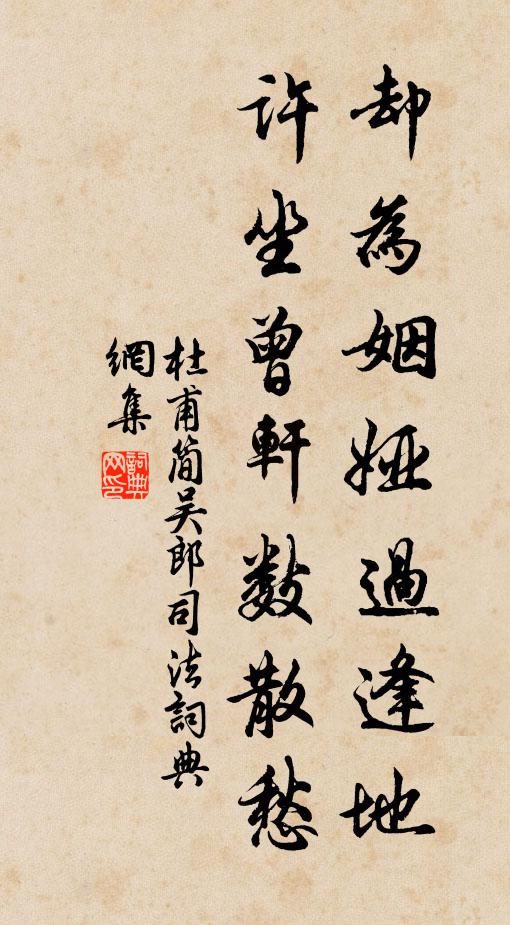 却為姻婭過逢地
許坐曾軒數散愁
杜甫簡吳郎司法詞典
網集
詞典網印